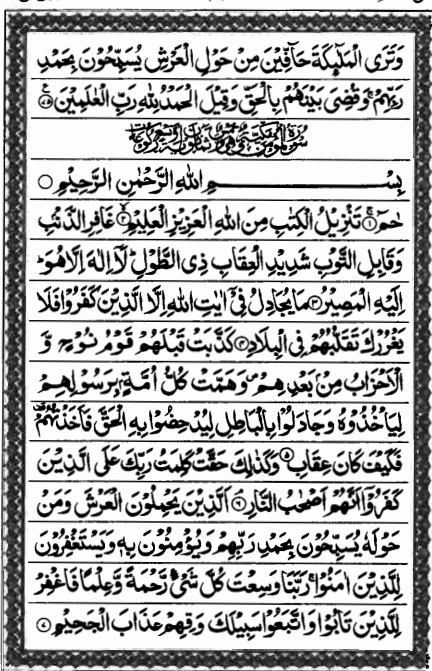 وَتَرَى الْمَلٰٓئِكَةَ حَآفِّيْنَ مِنْ حَوْلِ الْعَرْشِ يُسَبِّحُوْنَ بِحَمْدِ
رَبِّهِمْ ۚ وَقُضِيَ بَيْنَهُمْ بِالْحَقِّ وَقِيْلَ الْحَمْدُ لِلّٰهِ رَبِّ الْعٰلَمِيْنَ ۝
بِسْمِ اللّٰهِ الرَّحْمٰنِ الرَّحِيْمِ ۝
حٰمٓ ۝۱ تَنْزِيْلُ الْكِتٰبِ مِنَ اللّٰهِ الْعَزِيْزِ الْعَلِيْمِ ۝۲ غَافِرِ الذَّنْۢبِ
وَقَابِلِ التَّوْبِ شَدِيْدِ الْعِقَابِ ذِي الطَّوْلِ ؕ لَاۤ اِلٰهَ اِلَّا هُوَ ؕ
اِلَيْهِ الْمَصِيْرُ ۝۳ مَا يُجَادِلُ فِيْۤ اٰيٰتِ اللّٰهِ اِلَّا الَّذِيْنَ كَفَرُوْا فَلَا
يَغْرُرْكَ تَقَلُّبُهُمْ فِي الْبِلَادِ ۝۴ كَذَّبَتْ قَبْلَهُمْ قَوْمُ نُوْحٍ وَّ
الْاَحْزَابُ مِنْۢ بَعْدِهِمْ ۪ وَهَمَّتْ كُلُّ اُمَّةٍۭ بِرَسُوْلِهِمْ
لِيَاْخُذُوْهُ وَجَادَلُوْا بِالْبَاطِلِ لِيُدْحِضُوْا بِهِ الْحَقَّ فَاَخَذْتُهُمْ
فَكَيْفَ كَانَ عِقَابِ ۝۵ وَكَذٰلِكَ حَقَّتْ كَلِمَتُ رَبِّكَ عَلَى الَّذِيْنَ
كَفَرُوْۤا اَنَّهُمْ اَصْحٰبُ النَّارِ ۝۶ اَلَّذِيْنَ يَحْمِلُوْنَ الْعَرْشَ وَمَنْ
حَوْلَهٗ يُسَبِّحُوْنَ بِحَمْدِ رَبِّهِمْ وَيُؤْمِنُوْنَ بِهٖ وَيَسْتَغْفِرُوْنَ
لِلَّذِيْنَ اٰمَنُوْا ۚ رَبَّنَا وَسِعْتَ كُلَّ شَيْءٍ رَّحْمَةً وَّعِلْمًا فَاغْفِرْ
لِلَّذِيْنَ تَابُوْا وَاتَّبَعُوْا سَبِيْلَكَ وَقِهِمْ عَذَابَ الْجَحِيْمِ ۝۷